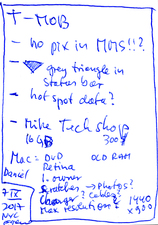 T-MOB
- no pix in MMS!!?
- grey triangle in status bar
- hot spot data?
- Mike Tech Shop
16GB 300
Mac = DVD OLD RAM
Retina
1. owner
Daniel scratches → photos?
Charger? cables?
Max resolution? 1440 x 900
7 IX
2017
NYC